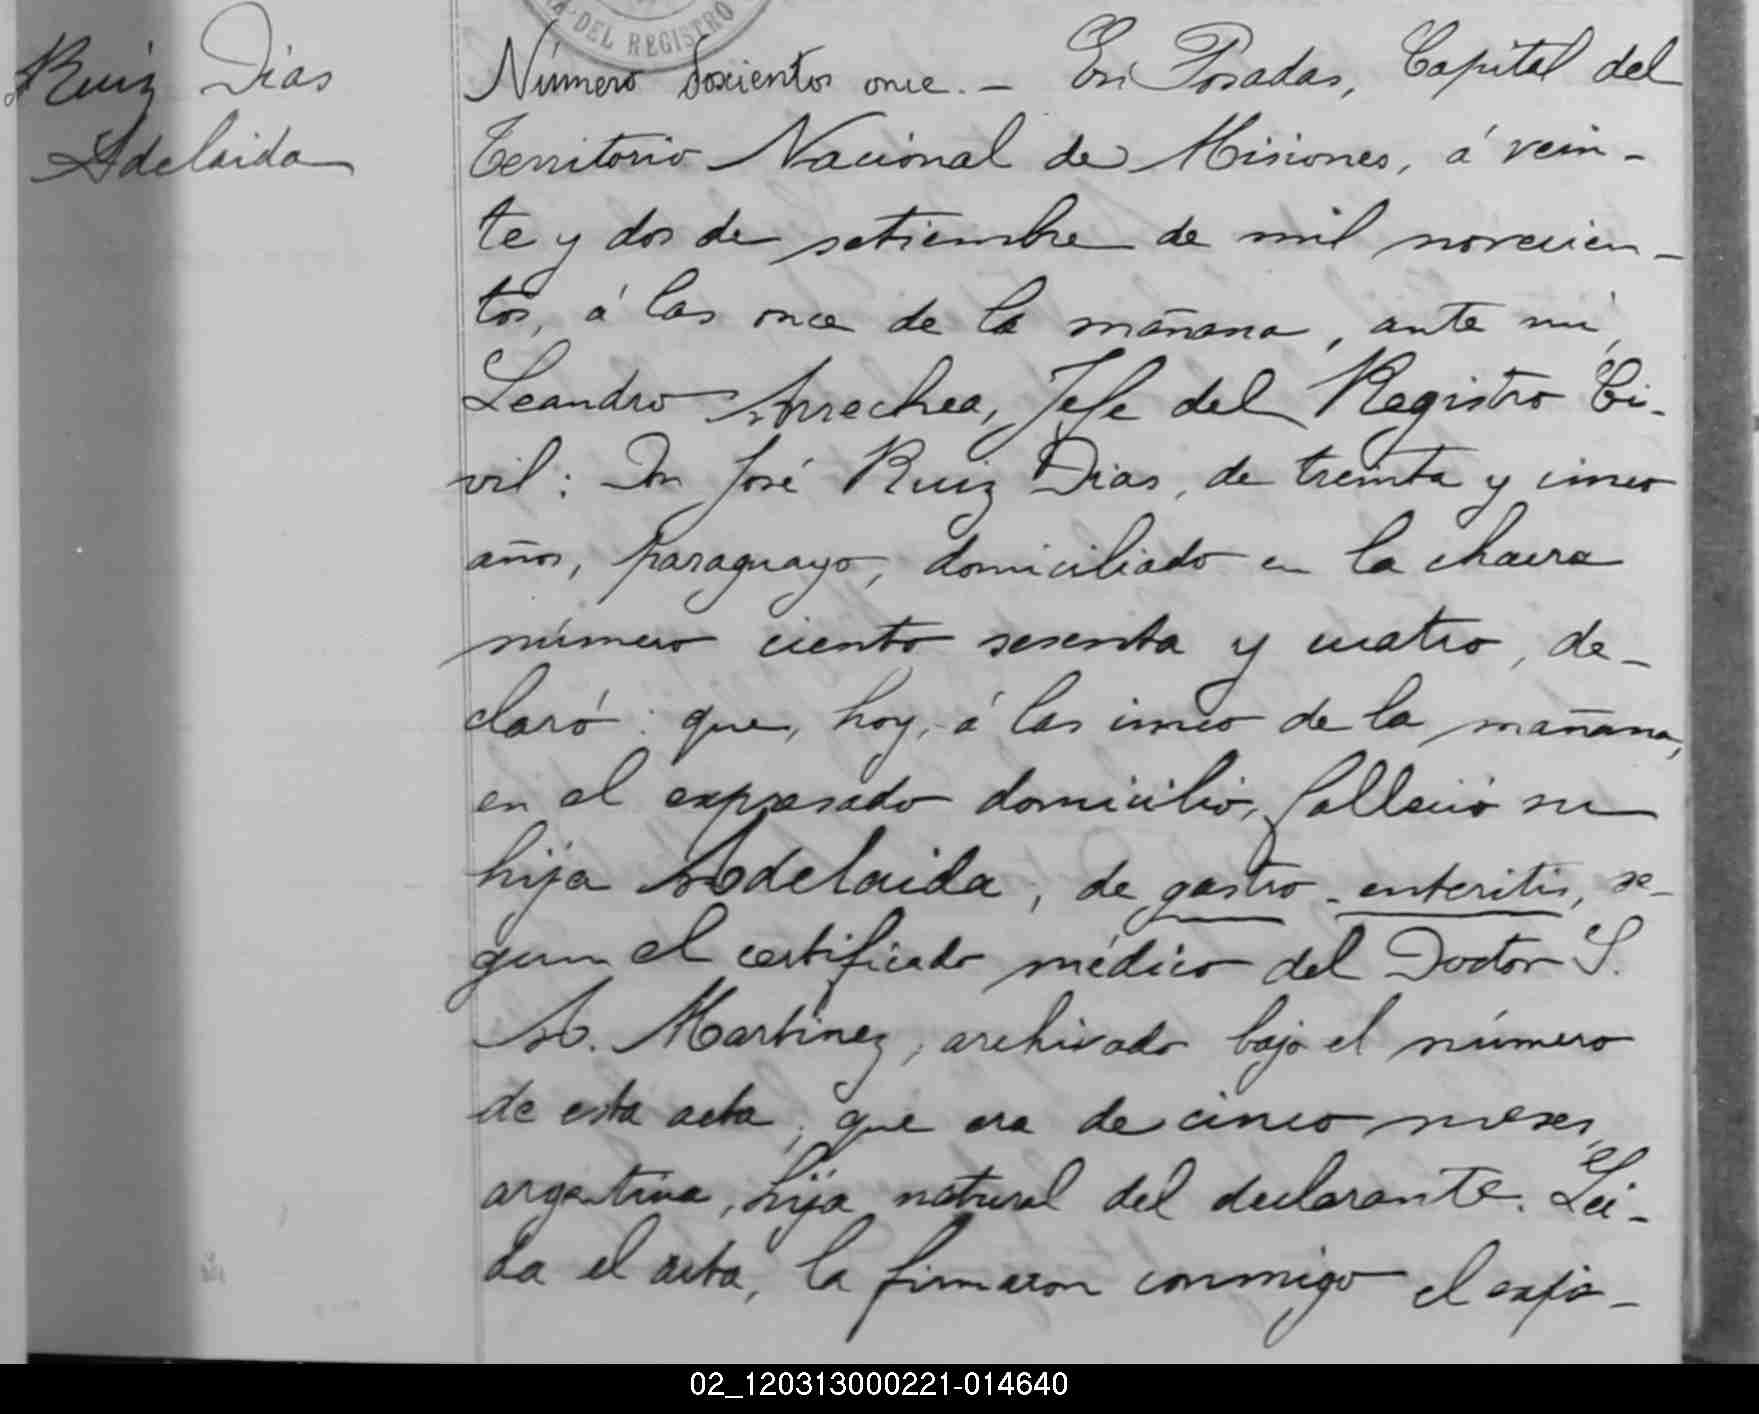 DEL REGISTRO
Ruiz Dias
Adelaida
Número doscientos once. — En Posadas, Capital del
Territorio Nacional de Misiones, á vein-
te y dos de setiembre de mil novecien-
tos, á las once de la mañana, ante mi,
Leandro Arrechea, Jefe del Registro Ci-
vil: Don José Ruiz Dias, de treinta y cinco
años, paraguayo, domiciliado en la chacra
número ciento sesenta y cuatro, de-
claró: que, hoy, á las cinco de la mañana,
en el expresado domicilio, falleció su
hija Adelaida, de gastro-enteritis, se-
gun el certificado médico del Doctor S.
A. Martinez, archivado bajo el número
de esta acta; que era de cinco meses,
argentina, hija natural del declarante. Lei-
da el acta, la firmaron conmigo el expo-
02_120313000221-014640